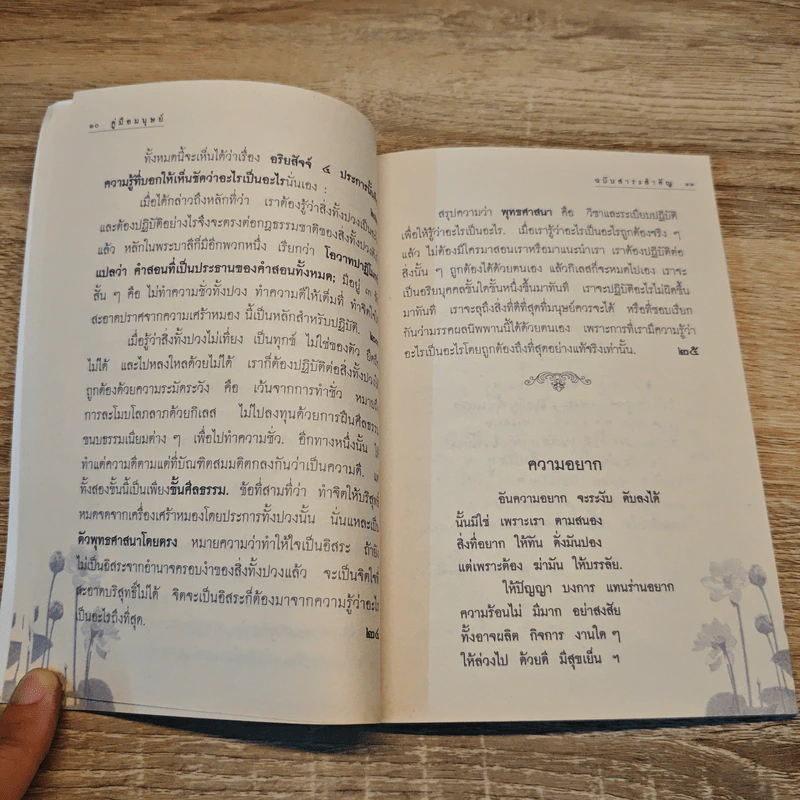 ๑๐ คู่มือมนุษย์
ทั้งหมดนี้จะเห็นได้ว่าเรื่อง อริยสัจจ์ ๔ ประการนั้น
ความรู้ที่บอกให้เห็นชัดว่าอะไรเป็นอะไรนั่นเอง :
เมื่อได้กล่าวถึงหลักที่ว่า เราต้องรู้สิ่งทั้งปวงเป็น
และต้องปฏิบัติอย่างไรจึงจะตรงต่อกฎธรรมชาติของสิ่งทั้งปวง
แล้ว หลักในพระบาลีก็มีอีกพวกหนึ่ง เรียกว่า
แปลว่า คำสอนที่เป็นประธานของคำสอนทั้งหมด; มีอยู่ ๓
สั้น ๆ คือ ไม่ทำความชั่วทั้งปวง ทำความดีให้เต็มที่ ทำจิตใจ
สะอาดปราศจากความเศร้าหมอง นี้เป็นหลักสำหรับปฏิบัติ.
เมื่อรู้ว่าสิ่งทั้งปวงไม่เที่ยง เป็นทุกข์ ไม่ใช่ของตัว
ไม่ได้ และไปหลงใหลด้วยไม่ได้ เราก็ต้องปฏิบัติต่อสิ่งทั้งปวง
ถูกต้องด้วยความระมัดระวัง คือ เว้นจากการทำชั่ว
การละโมบโลภลาภด้วยกิเลส ไม่ไปลงทุนด้วยการฝืนศีลธรรม
ขนบธรรมเนียมต่าง ๆ เพื่อไปทำความชั่ว. อีกทางหนึ่งนั้น
ทำแต่ความดีตามแต่ที่บัณฑิตสมมติตกลงกันว่าเป็นความดี.
ทั้งสองขั้นนี้เป็นเพียงขั้นศีลธรรม. ข้อที่สามที่ว่า ทำจิตให้บริสุทธิ์
หมดจดจากเครื่องเศร้าหมองโดยประการทั้งปวงนั้น นั่นแหละเป็น
ตัวพุทธศาสนาโดยตรง หมายความว่าทำให้ใจเป็นอิสระ
ไม่เป็นอิสระจากอำนาจครอบงำของสิ่งทั้งปวงแล้ว จะเป็นจิตใจที่
สะอาดบริสุทธิ์ไม่ได้ จิตจะเป็นอิสระก็ต้องมาจากความรู้ว่าอะไร
เป็นอะไรถึงที่สุด.
๒๔
ฉบับสาระสำคัญ ๑๑
สรุปความว่า พุทธศาสนา คือ วิชาและระเบียบปฏิบัติ
เพื่อให้รู้ว่าอะไรเป็นอะไร. เมื่อเรารู้ว่าอะไรเป็นอะไรถูกต้องจริง ๆ
แล้ว ไม่ต้องมีใครมาสอนเราหรือมาแนะนำเรา เราต้องปฏิบัติต่อ
สิ่งนั้น ๆ ถูกต้องได้ด้วยตนเอง แล้วกิเลสก็จะหมดไปเอง เราจะ
เป็นอริยบุคคลชั้นใดชั้นหนึ่งขึ้นมาทันที เราจะปฏิบัติอะไรไม่ผิดขึ้น
มาทันที เราจะลุถึงสิ่งที่ดีที่สุดที่มนุษย์ควรจะได้ หรือที่ชอบเรียก
กันว่ามรรคผลนิพพานนี้ได้ด้วยตนเอง เพราะการที่เรามีความรู้ว่า
อะไรเป็นอะไรโดยถูกต้องถึงที่สุดอย่างแท้จริงเท่านั้น. ๒๕
ความอยาก
อันความอยาก จะระงับ ดับลงได้
นั้นมิใช่ เพราะเรา ตามสนอง
สิ่งที่อยาก ให้ทัน ดั่งมันปอง
แต่เพราะต้อง ฆ่ามัน ให้บรรลัย.
ให้ปัญญา บงการ แทนร่านอยาก
ความร้อนไม่ มีมาก อย่าสงสัย
ทั้งอาจผลิต กิจการ งานใด ๆ
ให้ล่วงไป ด้วยดี มีสุขเย็น ฯ